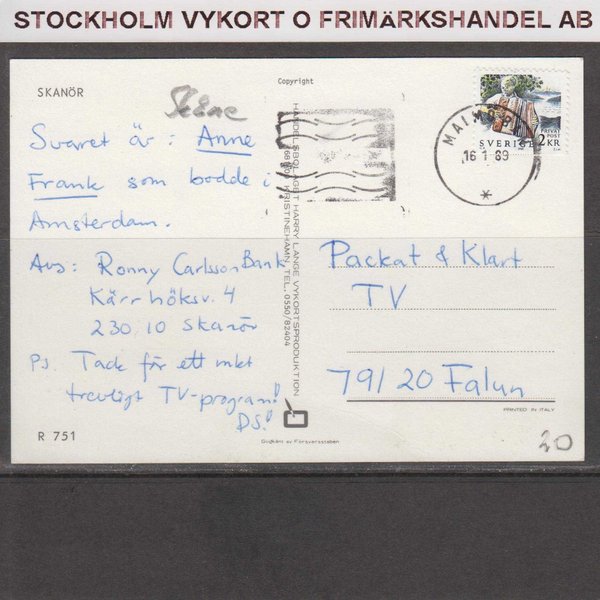 STOCKHOLM VYKORT O FRIMÄRKSHANDEL AB
SKANÖR
Skåne
Copyright
Svaret är: Anne
Frank som bodde i
Amsterdam.
Avs: Ronny Carlsson Bank
Kärrhöksv. 4
230 10 Skanör
Ps. Tack för ett mkt
trevligt TV-program!
DS!
R 751
HANDELSBOLAGET HARRY LANGE VYKORTSPRODUKTION
KRISTINEHAMN, TEL. 0550/82404
Godkänt av Försvarsstaben
MALMÖ
16 1 89
PRIVAT
POST
SVERIGE 2KR
Packat & Klart
TV
791 20 Falun
PRINTED IN ITALY
20